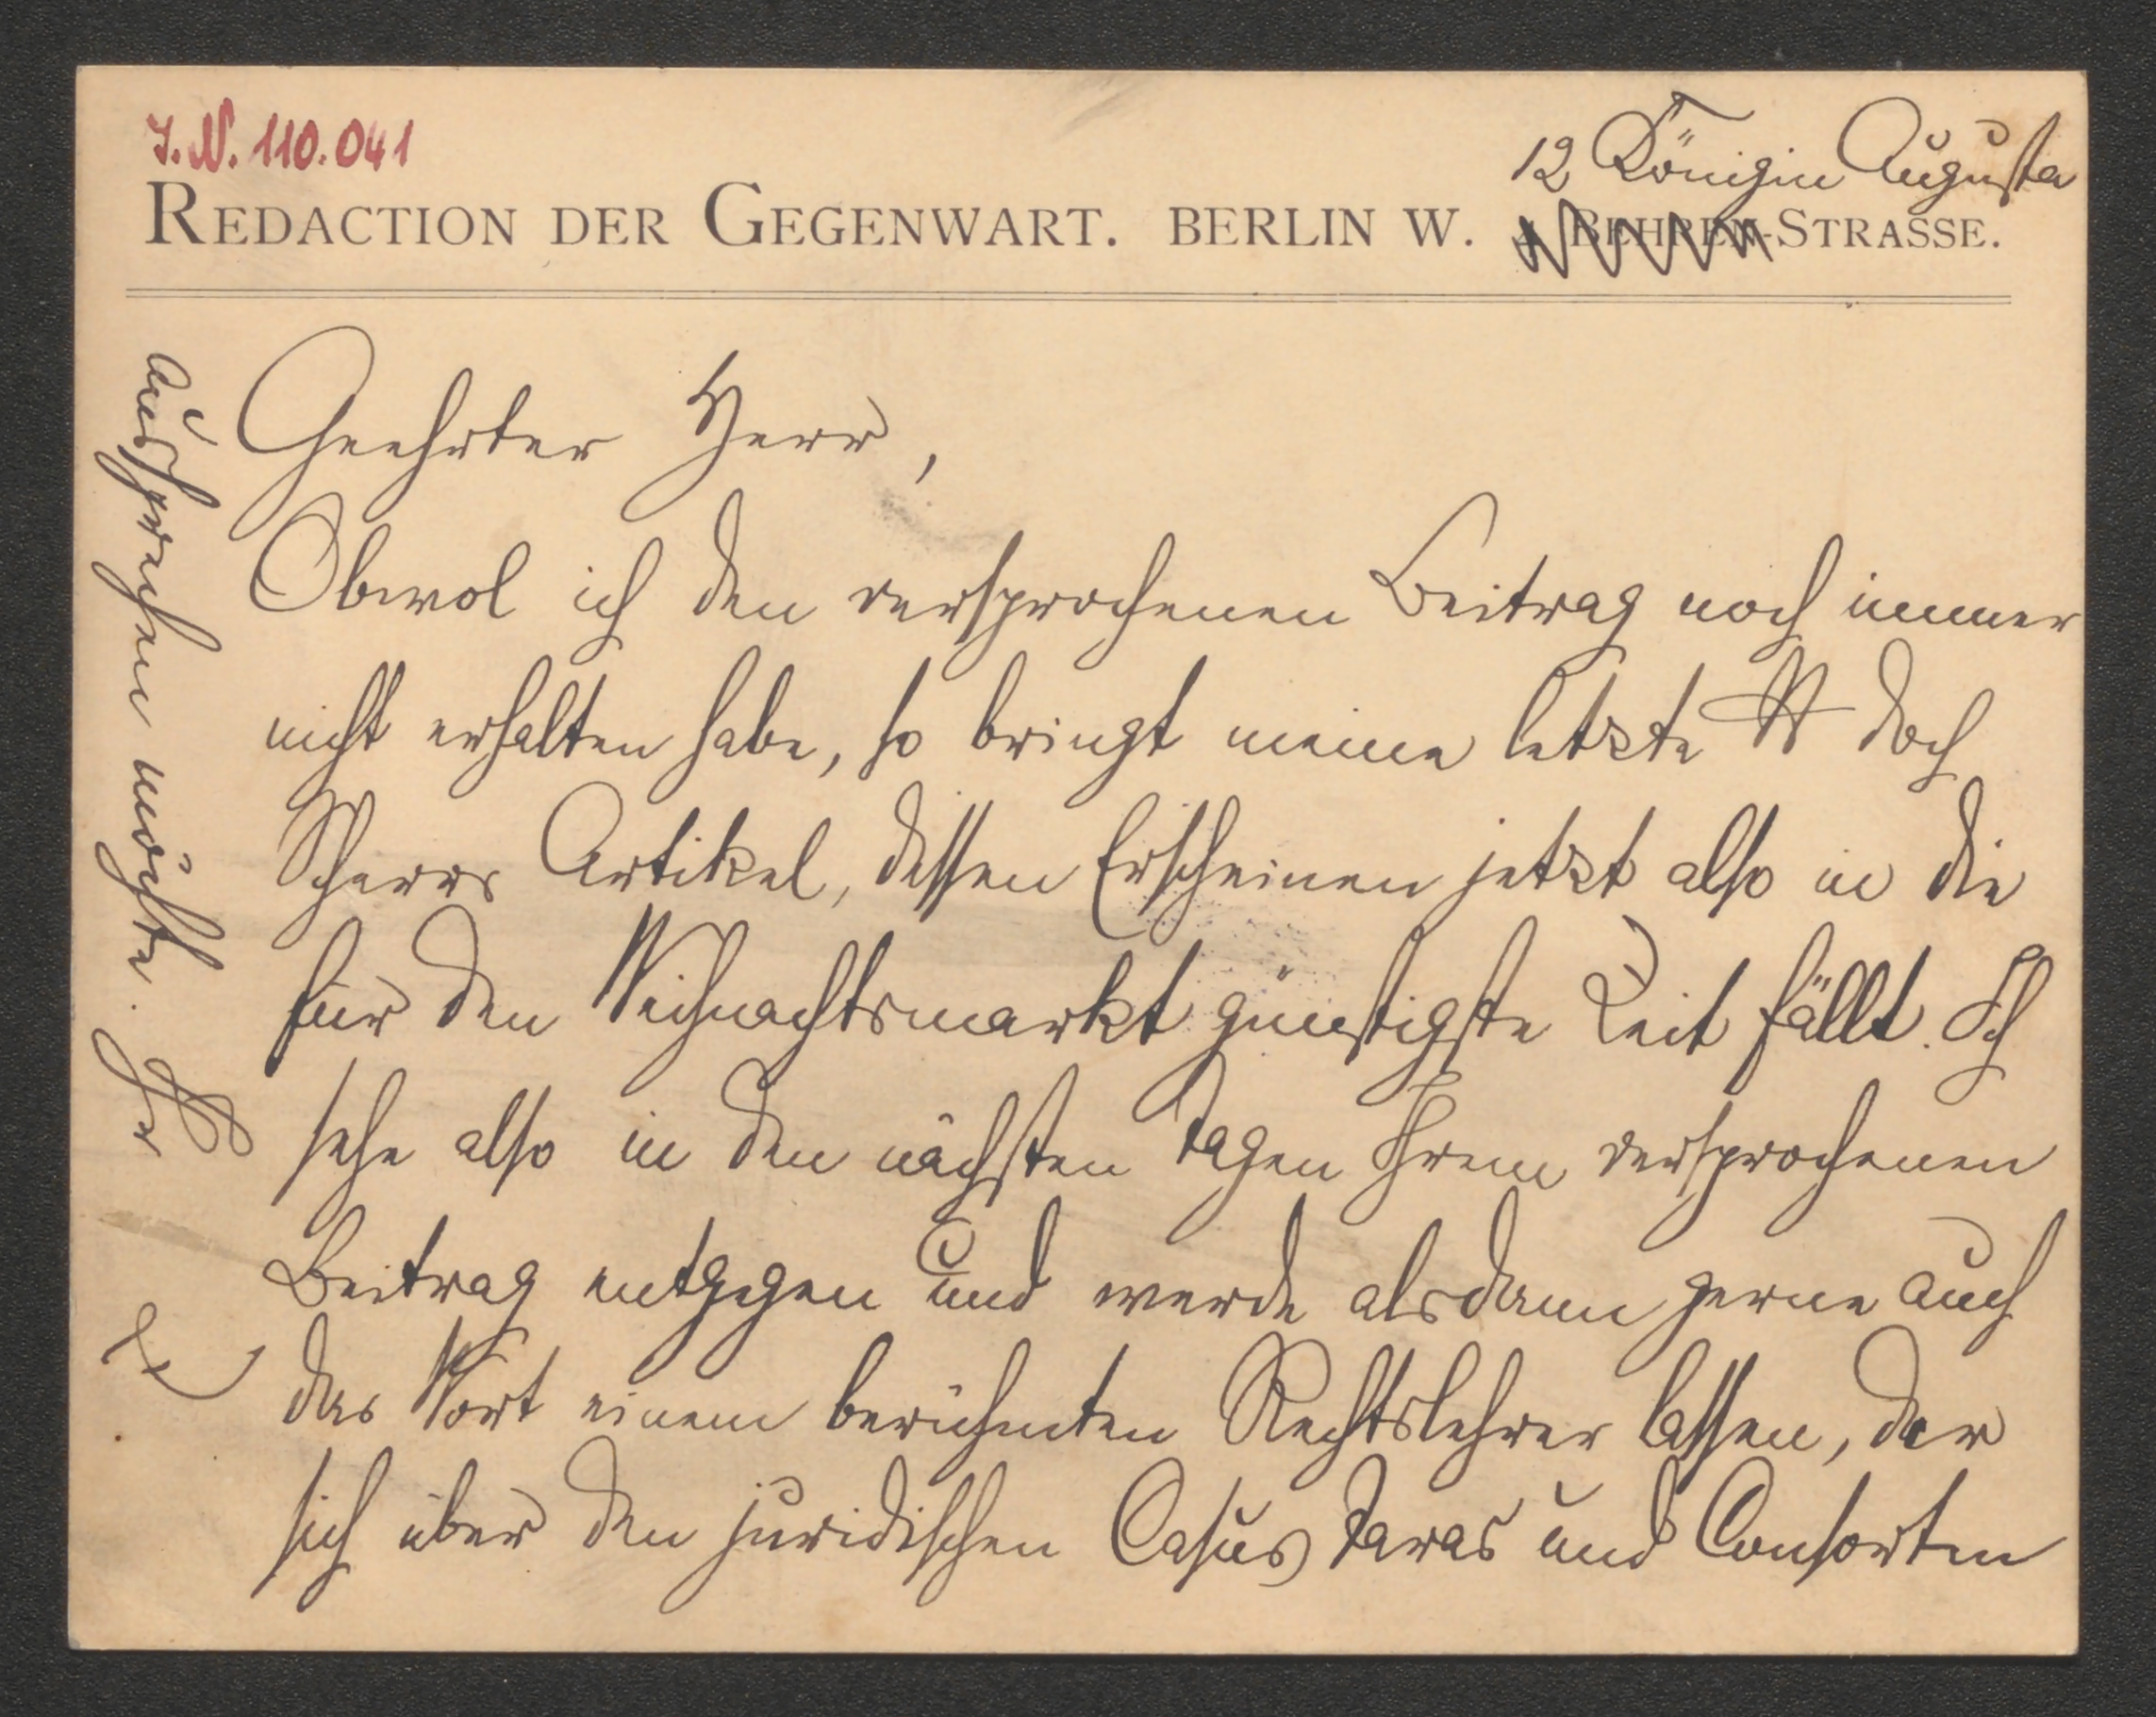 J. N. 110.041
12 Königin Augusta
REDACTION DER GEGENWART. BERLIN W. BEHREN-STRASSE.
Geehrter Herr,
Obwol ich den versprochenen Beitrag noch immer
nicht erhalten habe, so bringt meine letzte № doch
Scherrs Artikel, dessen Erscheinen jetzt also in die
für den Weihnachtsmarkt günstigste Zeit fällt. Ich
sehe also in den nächsten Tagen Ihrem versprochenen
Beitrag entgegen und werde alsdann gerne auch
das Wort einem berühmten Rechtslehrer lassen, der
sich über den juridischen Casus Taras und Consorten
aussprechen möchte. Ihr